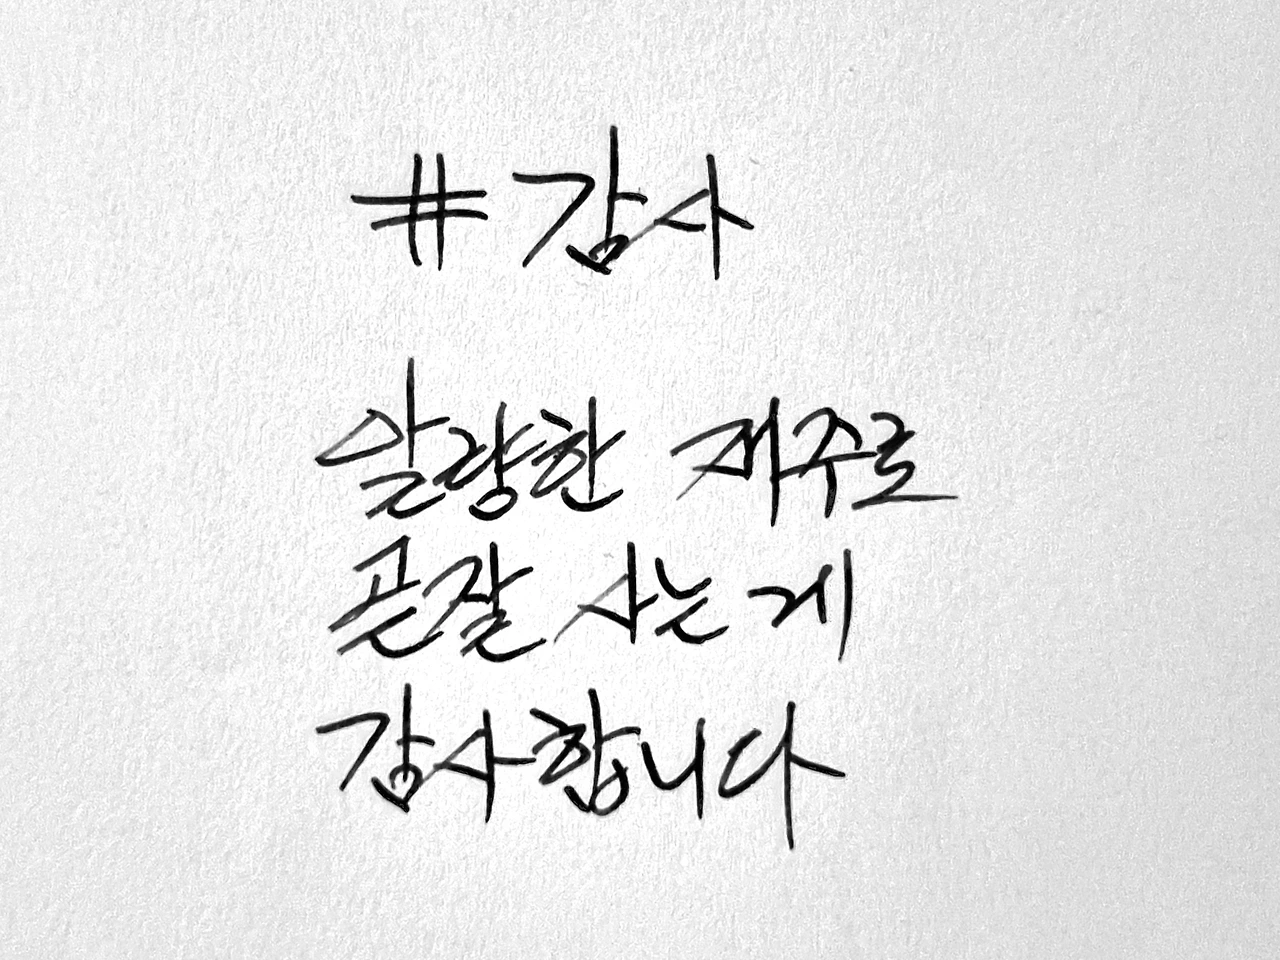 #감사
알량한 재주로
곧잘 사는 게
감사합니다